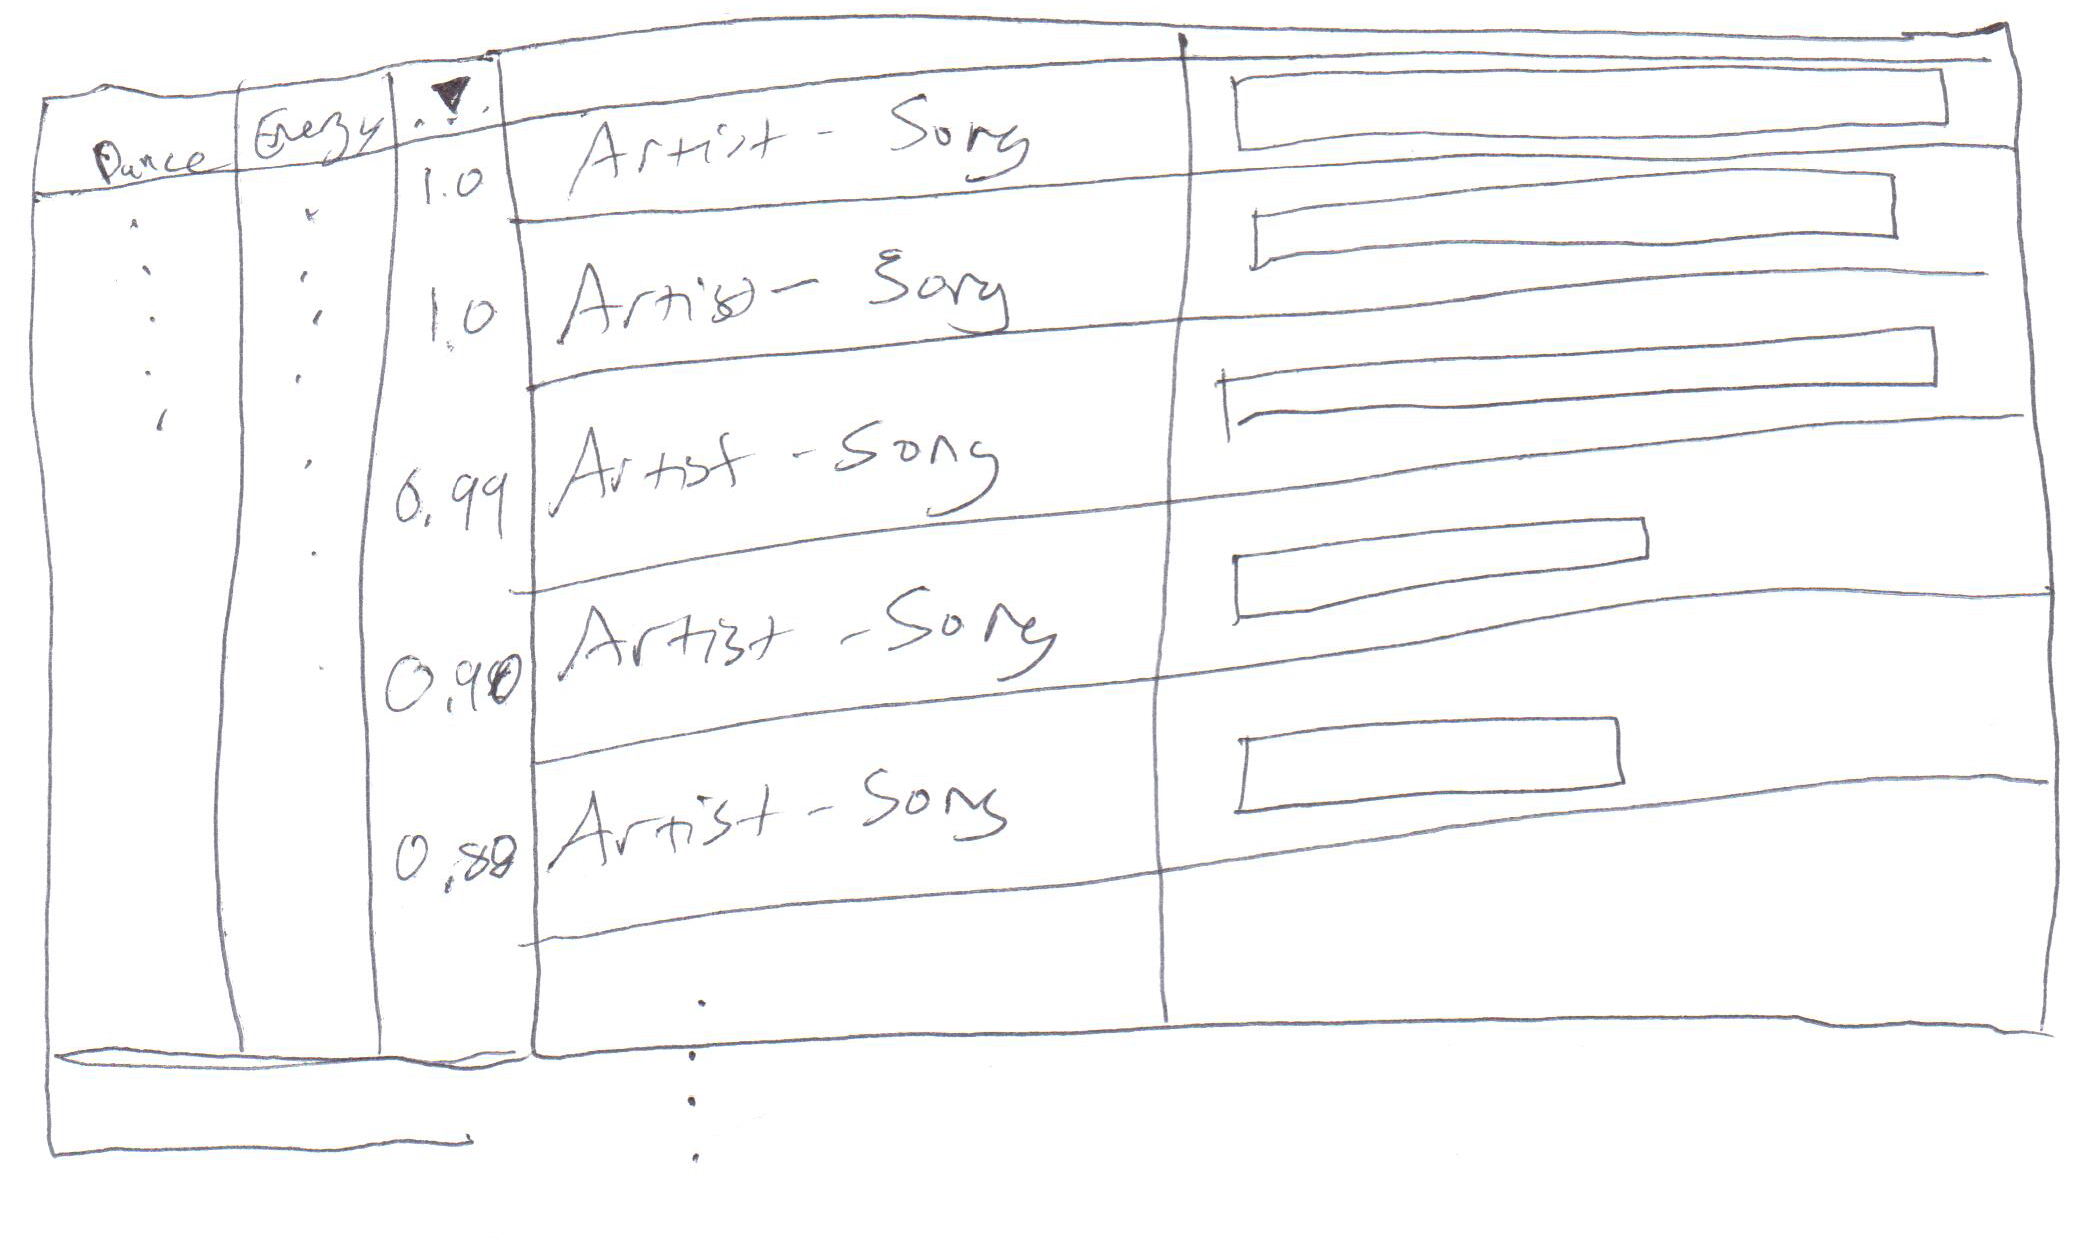 Dance Energy ...
1.0 Artist - Song
1.0 Artist - Song
0.99 Artist - Song
0.90 Artist - Song
0.88 Artist - Song